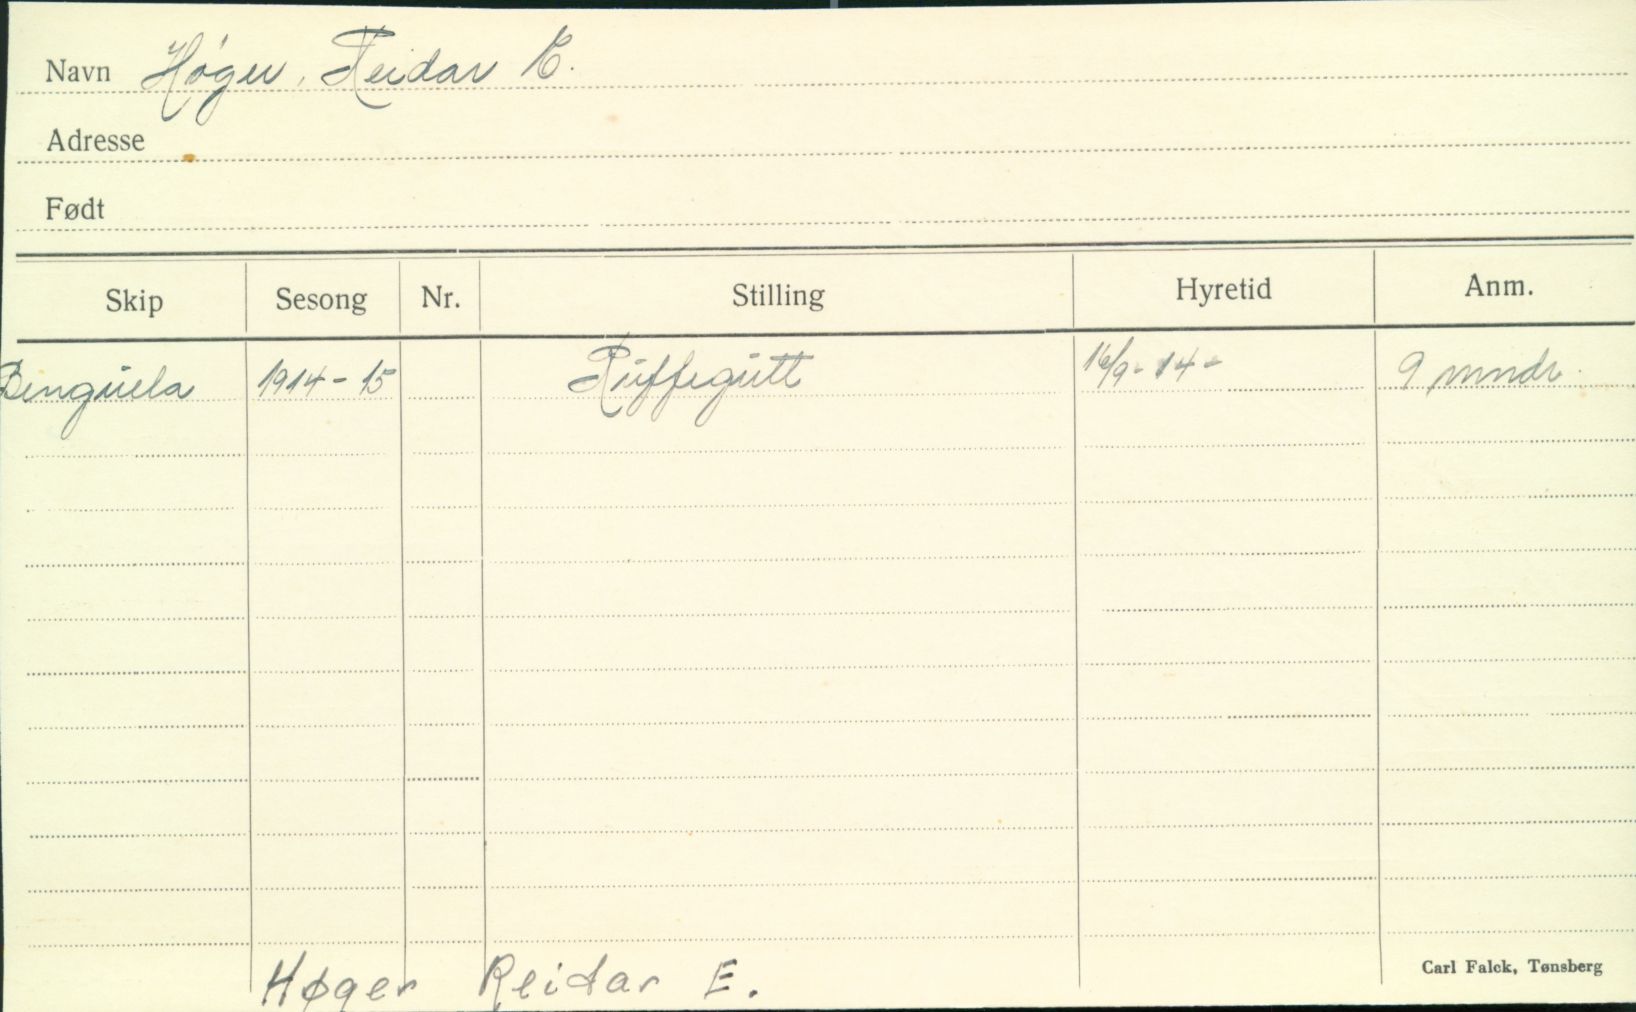 Navn Høger, Reidar E.
Adresse
Født
Skip Sesong Nr. Stilling Hyretid Anm.
Benguela 1914-15 Rüffegütt 16/9-14- 9 mndr.
Høger Reidar E.
Carl Falck, Tønsberg